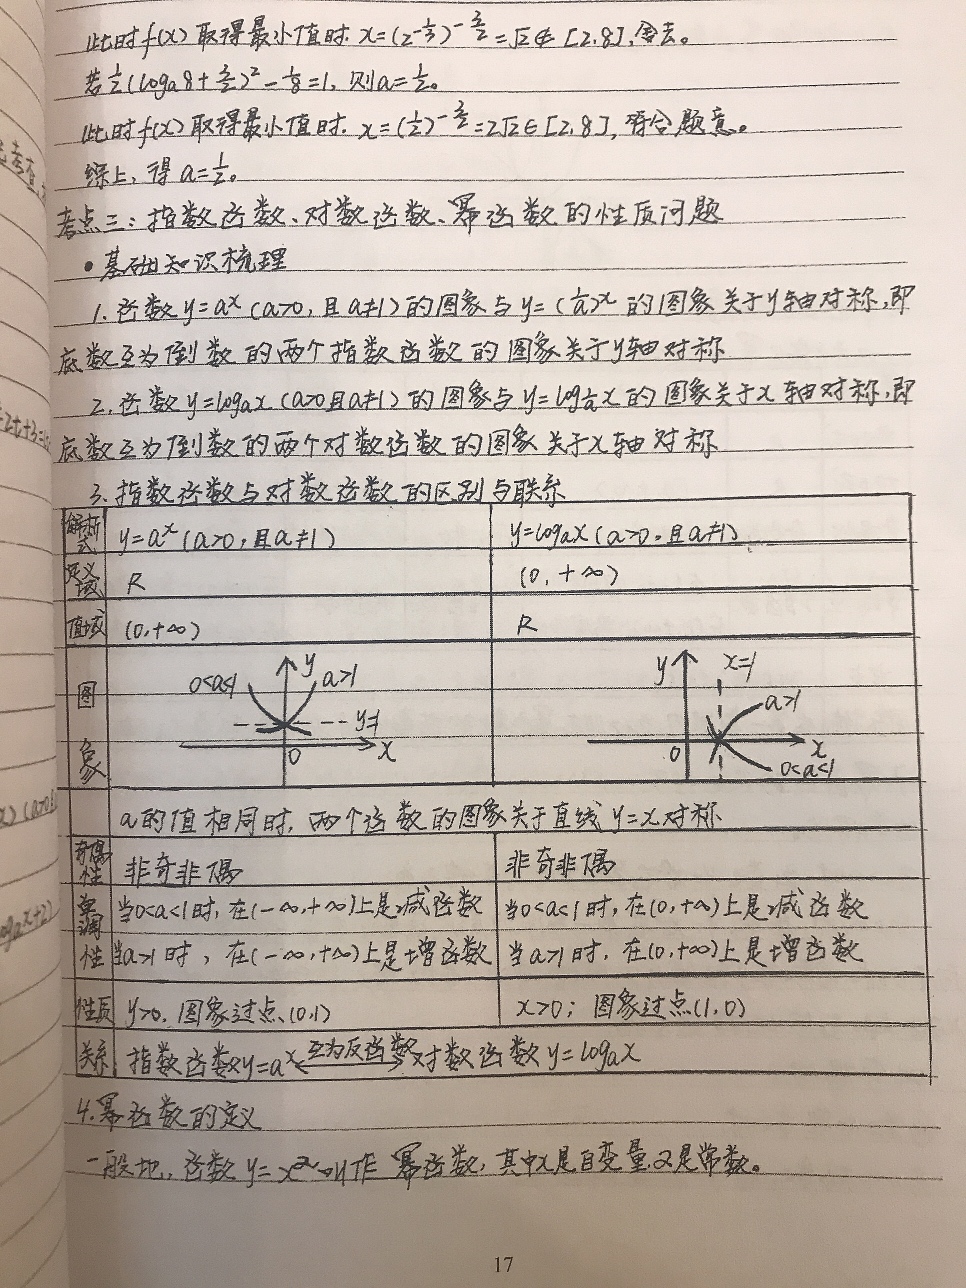 此时f(x)取得最小值时.x=(2^{-1/3})^{-3/2}=√2∉[2,8],舍去。
若1/2(logₐ8+3/2)²-1/8=1,则a=1/2。
此时f(x)取得最小值时.x=(1/2)^{-3/2}=2√2∈[2,8],符合题意。
综上,得a=1/2。
考点三:指数函数、对数函数、幂函数的性质问题
•基础知识梳理
1.函数y=aˣ(a>0,且a≠1)的图象与y=(1/a)ˣ的图象关于y轴对称,即
底数互为倒数的两个指数函数的图象关于y轴对称
2.函数y=logₐx(a>0且a≠1)的图象与y=log_{1/a}x的图象关于x轴对称,即
底数互为倒数的两个对数函数的图象关于x轴对称
3.指数函数与对数函数的区别与联系
解析式 y=aˣ(a>0,且a≠1) y=logₐx(a>0.且a≠1)
定义域 R (0,+∞)
值域 (0,+∞) R
图象
0<a<1 y a>1 y=1 0 x
y x=1 a>1 0 x 0<a<1
a的值相同时,两个函数的图象关于直线y=x对称
奇偶性 非奇非偶 非奇非偶
单调性 当0<a<1时,在(-∞,+∞)上是减函数 当0<a<1时,在(0,+∞)上是减函数
当a>1时,在(-∞,+∞)上是增函数 当a>1时,在(0,+∞)上是增函数
性质 y>0.图象过点(0,1) x>0;图象过点(1,0)
关系 指数函数y=aˣ 互为反函数 对数函数y=logₐx
4.幂函数的定义
一般地,函数y=x^α叫作幂函数,其中x是自变量,α是常数。
17